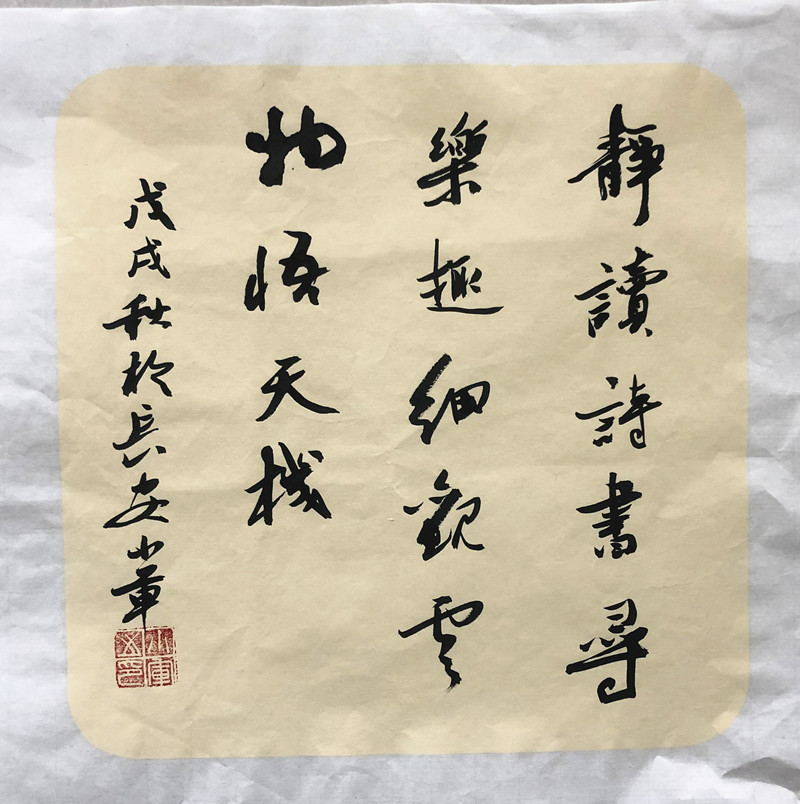 靜讀詩書尋
樂趣細觀雲
物悟天機
戊戌秋於長安小軍